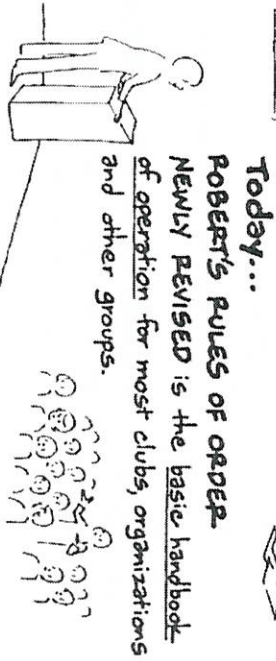 Today...
ROBERT'S RULES OF ORDER
NEWLY REVISED is the basic handbook
of operation for most clubs, organizations
and other groups.